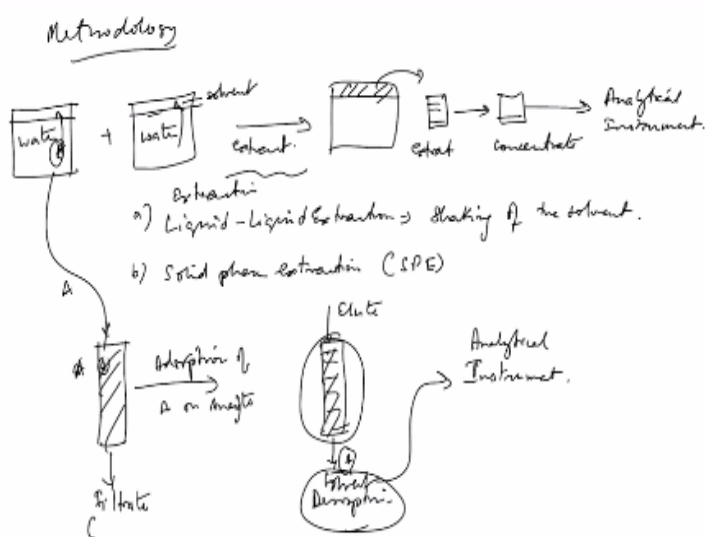 Methodology
water A + water solvent extract. extract concentrate Analytical Instrument.
Extraction
a) Liquid-Liquid Extraction => Shaking of the solvent.
b) Solid phase extraction (SPE)
A
Elute
A A Adsorption of
A on
Analytical
Instrument.
A
Solvent
Desorption.
Filtrate